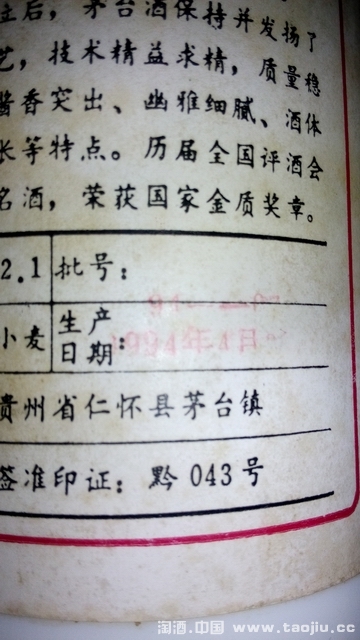 后，茅台酒保持并发扬了
艺，技术精益求精，质量稳
酱香突出、幽雅细腻、酒体
长等特点。历届全国评酒会
名酒，荣获国家金质奖章。
2.1 批号：
小麦 生产日期： 1994年 日
贵州省仁怀县茅台镇
签准印证：黔043号
淘酒.中国 www.taojiu.cc